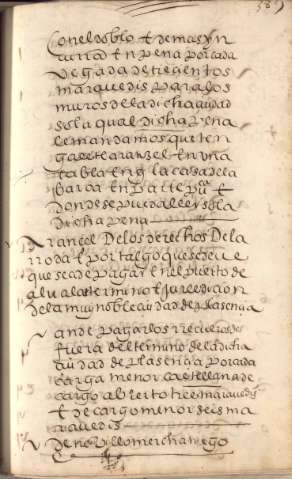 Con el doblo E demas yn
curra En pena por cada
vegada de trezientos
maravedis para los
muros de la dicha çiudad
so la qual dicha pena
le mandamos que ten
ga este aranzel En vna
tabla En la casa de la
barca En parte pu^ca E
donde se pueda leer so la
dicha pena
Aranzel De los derechos De la
rroda E portalgo que se deue
que se a de pagar En el puerto de
alvala termino E juredicion
De la muy noble çiudad de plasençia
an de pagar los rrecueros de
fuera del termino de la dicha
çiudad de plasençia por cada
carga menor castellana de
cargo abierto tres maravedis
E de cargo minor seis ma
ravedis
De novillo merchaniego